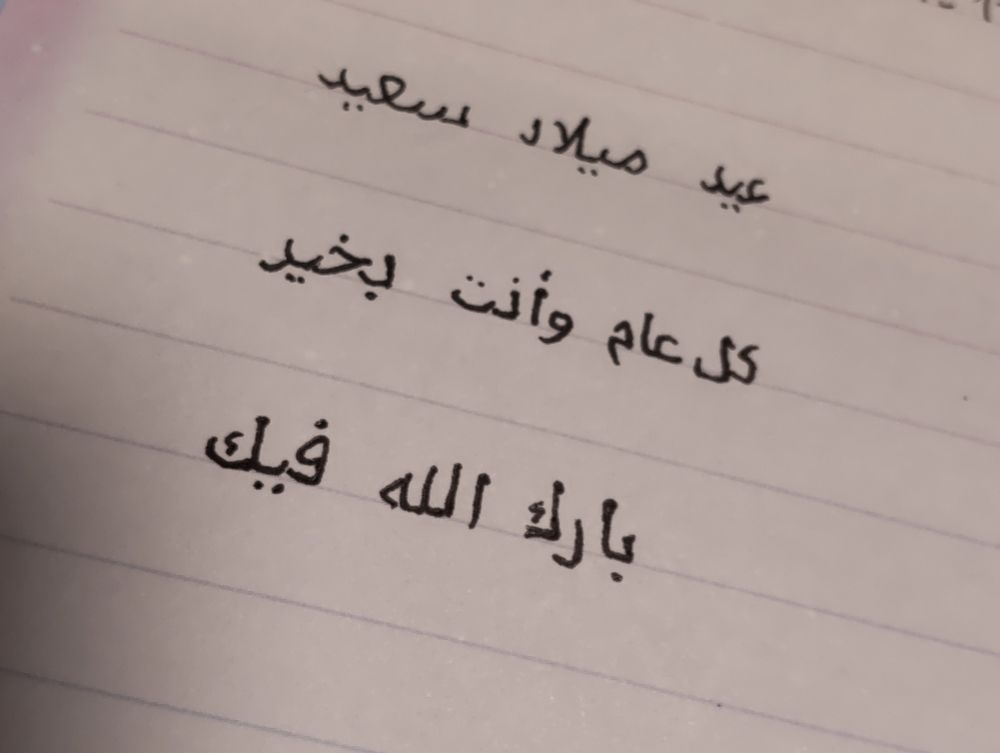 عيد ميلاد سعيد
كل عام وأنت بخير
بارك الله فيك